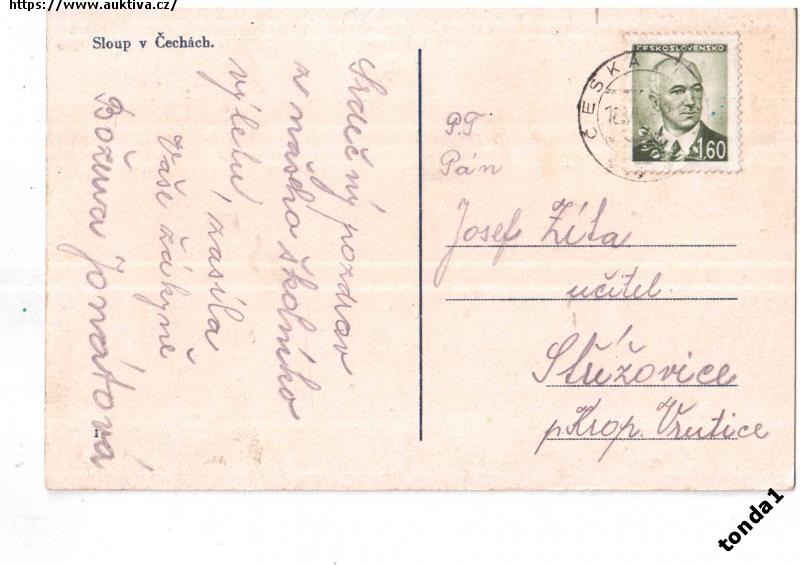 https://www.auktiva.cz/
Sloup v Čechách.
Srdečný pozdrav
z našeho školního
výletu, zasílá
Vaše žákyně
Božena Jonátová
ČESKOSLOVENSKO
1.60
ČESKÁ
P.T.
Pán
Josef Zíta
učitel.
Střížovice
p. Krop. Vrutice
tonda1